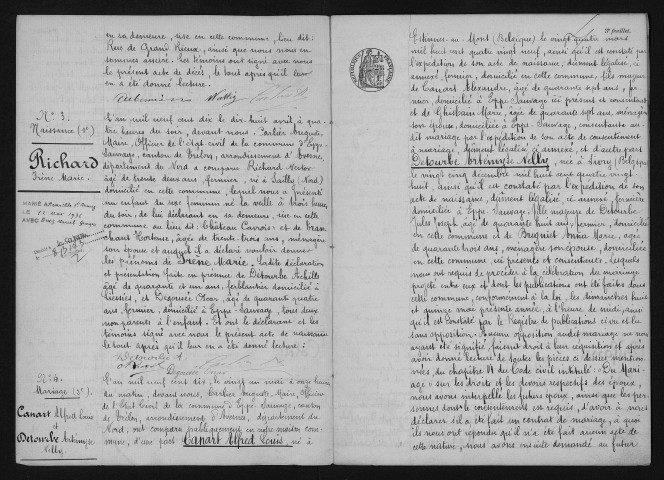 en sa demeure, sise en cette commune, lieu dit:
Rue de Grand Rieux, ainsi que nous nous en
sommes assuré. Les témoins ont signé avec nous
le présent acte de décès, le tout après qu'il leur
en a été donné lecture.
N° 3.
Naissance (2e)
Richard
Irène Marie.
MARIÉ A
LE 15 mai 1931
AVEC
L'an mil neuf cent dix le dix huit avril à quatre
heures du soir, devant nous, Carlier Auguste,
Maire, Officier de l'état civil de la commune d'Eppe-
Sauvage, canton de Trélon, arrondissement d'Avesnes,
département du Nord a comparu Richard Nestor
âgé de trente deux ans, fermier, né à Sailly (Nord)
domicilié en cette commune, lequel nous a présenté
un enfant du sexe féminin né la veille à trois heures
du soir, de lui déclarant en sa demeure, sise en cette
commune au lieu dit: Château Carnois et de Blan-
chard Hortense, âgée de trente-trois ans, ménagère
son épouse et auquel il a déclaré vouloir donner
les prénoms de Irène Marie, Ladite déclaration
et présentation faite en présence de Détourbe Achille
âgé de quarante et un ans, ferblantier domicilié à
Liessies, et Degousée Oscar, âgé de quarante quatre
ans, fermier, domicilié à Eppe-Sauvage, tous deux
non parents à l'enfant. Et ont le déclarant et les
témoins signé avec nous le présent acte de naissance
le tout après qu'il leur en a été donné lecture:
N° 4.
Mariage (2e).
Canart Alfred Louis
et
Détourbe Artémyse
Nelly.
L'an mil neuf cent dix, le vingt un mai à onze heures
du matin, devant nous, Carlier Auguste, Maire, Officier
de l'Etat Civil de la commune d'Eppe Sauvage, canton
de Trélon, arrondissement d'Avesnes, département du
Nord, ont comparu publiquement en notre maison com-
mune, d'une part Canart Alfred Louis, né à
2e feuillet.
Estinnes-au-Mont (Belgique) le vingt quatre mars
mil huit cent quatre vingt neuf, ainsi qu'il est constaté par
l'expédition de son acte de naissance, dûment légalisé, ci
annexé, fermier, domicilié en cette commune, fils majeur
de Canart Alexandre, âgé de quarante sept ans, fer-
mier, domicilié à Eppe Sauvage ici présent et consentant
et de Ghislain Marie, âgée de quarante sept ans, ménagère
son épouse, domiciliée à Eppe Sauvage, consentante
par l'expédition de son acte de consentement
à mariage, dûment légalisé, ci annexé, et d'autre part
Détourbe Artémyse Nelly, née à Sivry (Belgique)
le vingt cinq décembre mil huit cent quatre vingt
huit, ainsi qu'il est constaté par l'expédition de son
acte de naissance, dûment légalisé, ci annexé, fermière
domiciliée à Eppe Sauvage, fille majeure de Détourbe
Jules Joseph, âgé de quarante huit ans, fermier, domicilié
en cette commune et de Buqniet Irma Marie, âgée
de quarante trois ans, ménagère son épouse, domiciliée
en cette commune, ici présents et consentants, lesquels
nous ont requis de procéder à la célébration du mariage
projeté entre eux et dont les publications ont été faites dans
cette commune, conformément à la loi, les dimanches huit
et quinze mai présente année, à l'heure de midi, ainsi
qu'il est constaté par le registre de publications et vu la
non opposition. Aucune opposition audit mariage ne nous
ayant été signifié, faisant droit à leur requisition et après
avoir donné lecture de toutes les pièces ci dessus mention-
nées, du chapitre VI du Code civil intitulé: "Du Mari-
age" sur les droits et les devoirs respectifs des époux,
nous avons interpellé les futurs époux, ainsi que les per-
sonnes dont le consentement est requis, d'avoir à nous
déclarer s'il a été fait un contrat de mariage, à quoi
ils nous ont répondu qu'il n'a été fait aucun acte de
cette nature, nous avons ensuite demandé au futur